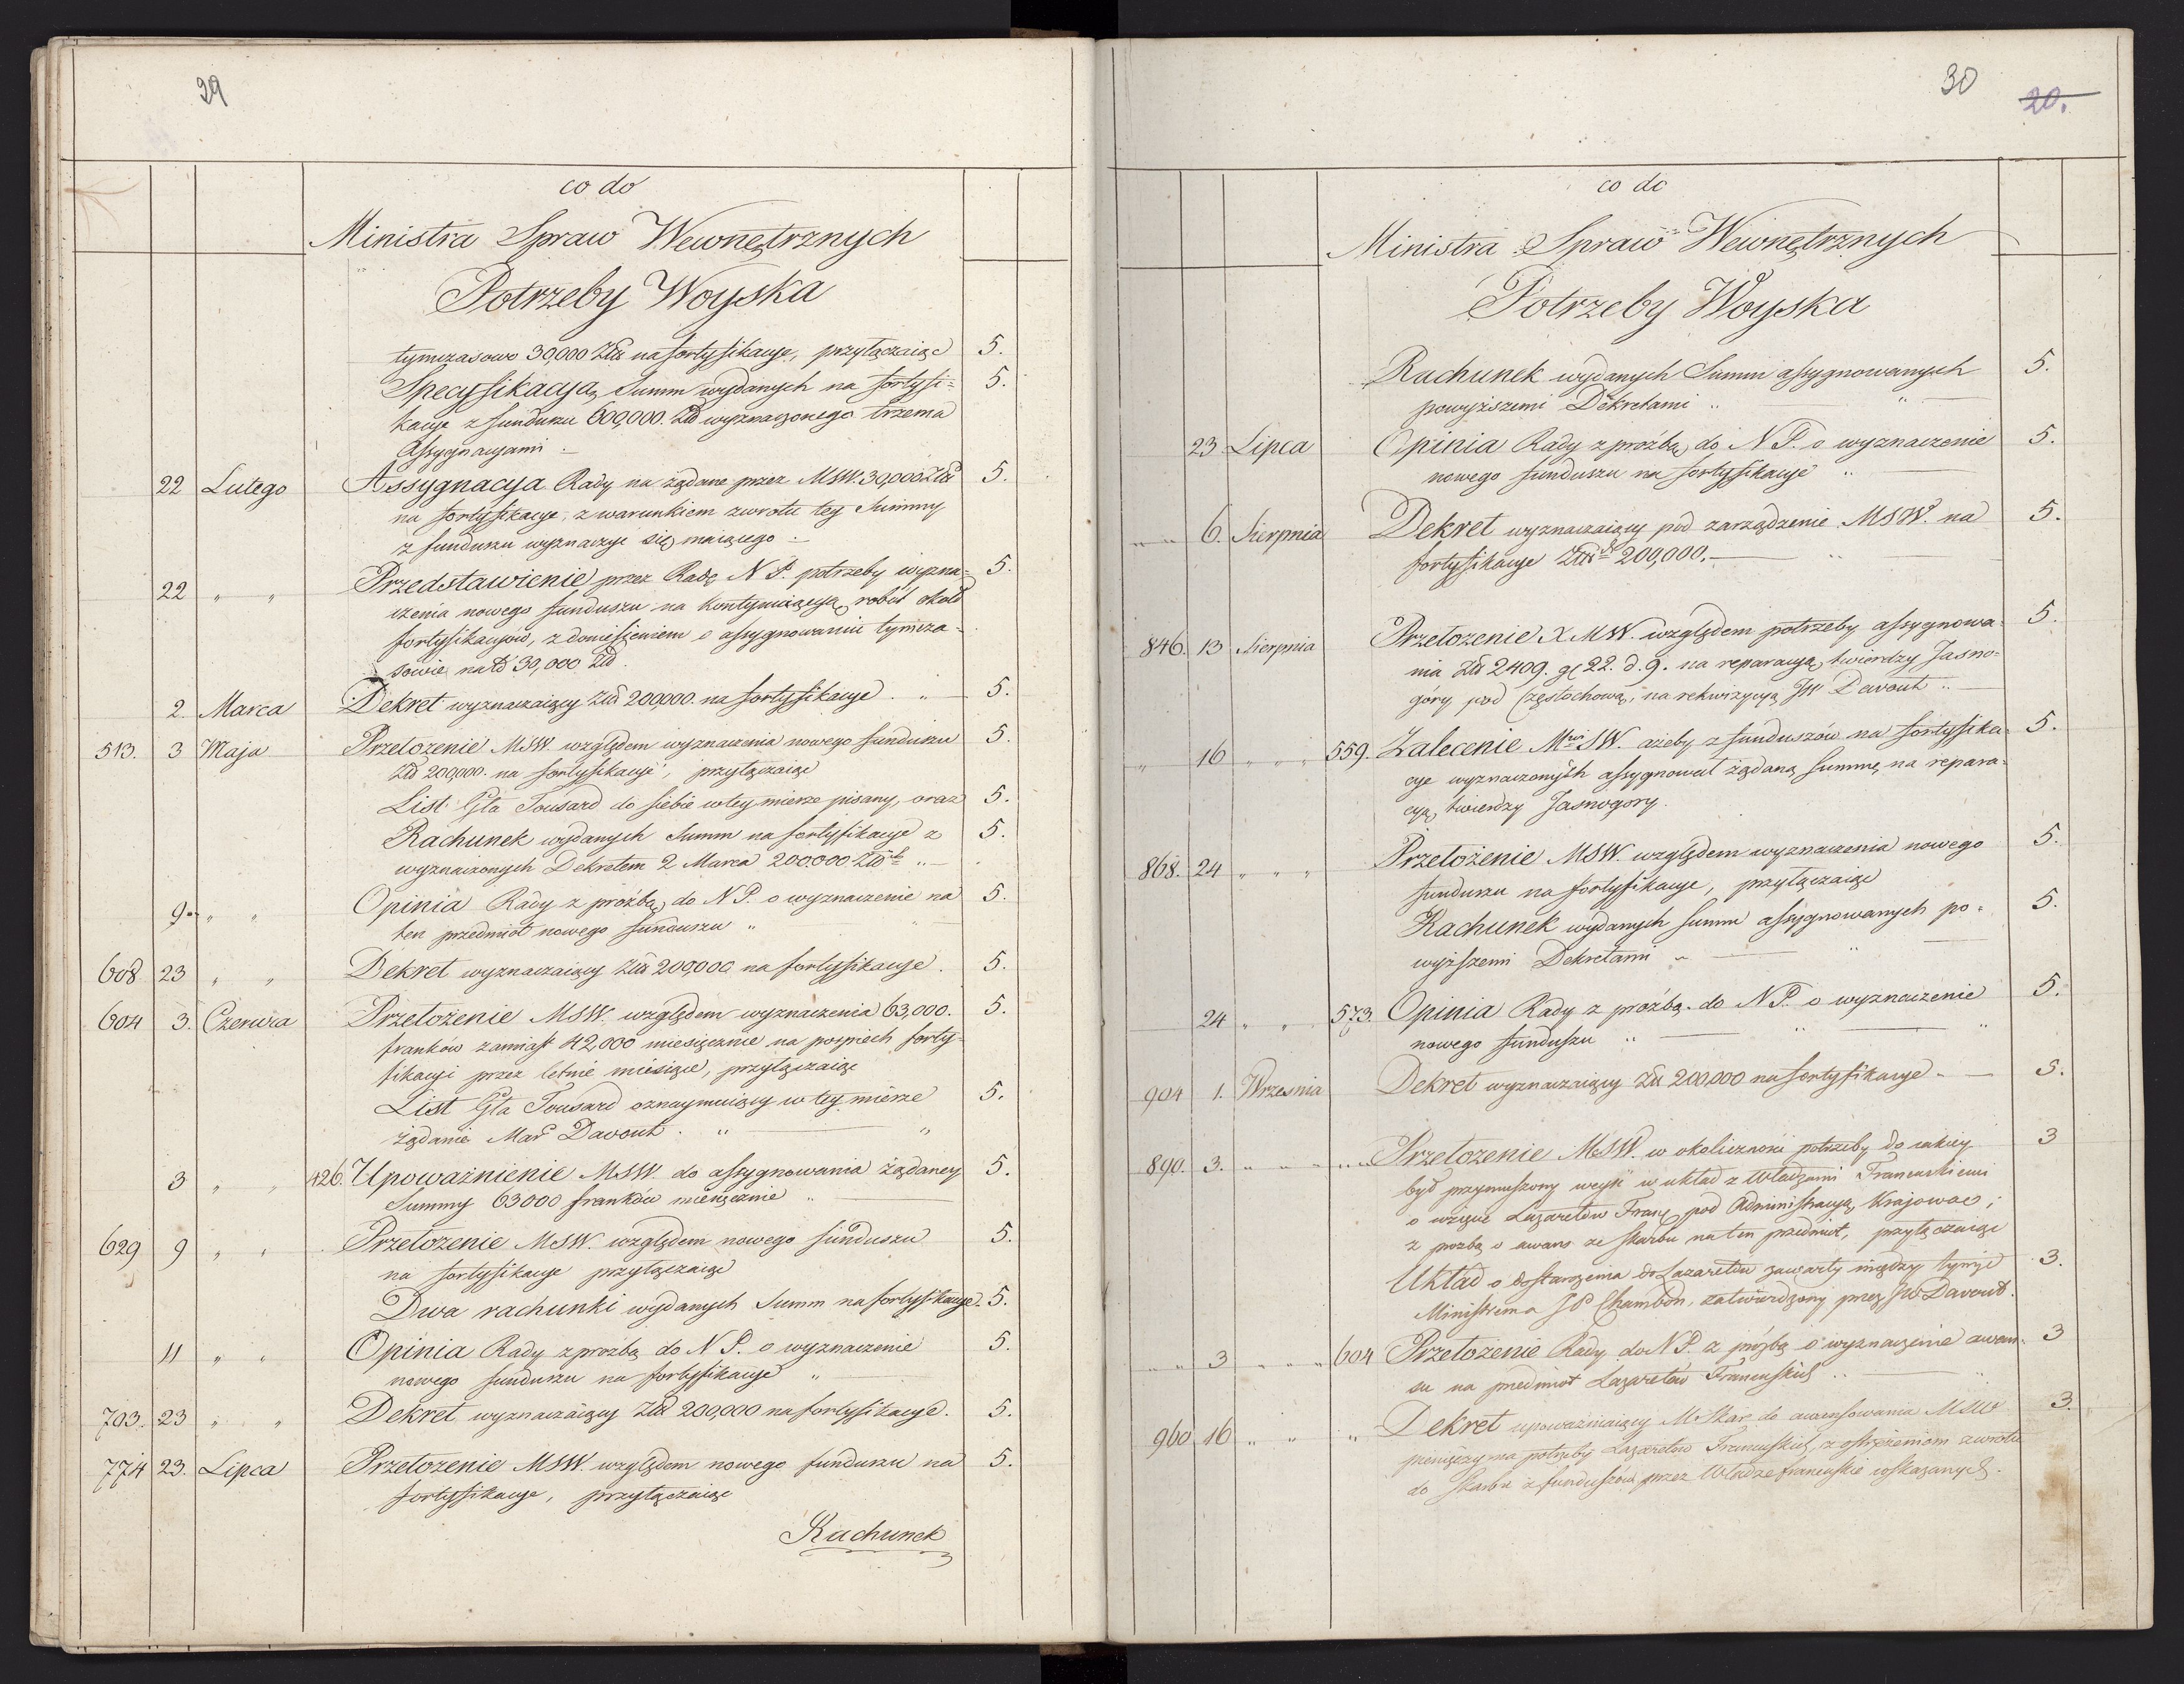 29
co do
Ministra Spraw Wewnętrznych
Potrzeby Woyska
tymczasowo 30,000 Złł na fortyfikacye, przyłączaiąc 5.
Specyfikacyą Summ wydanych na fortyfi= 5.
kacye z funduszu 600,000. Złł wyznaczonego trzema
Assygnacyami
22 Lutego Assygnacya Rady na żądane przez MSW. 30,000 Złł 5.
na fortyfikacye, z warunkiem zwrotu tey Summy
z funduszu wyznaczyć się maiącego
22 " " Przedstawienie przez Radę N P. potrzeby wyzna= 5.
czenia nowego funduszu na kontynuacyą robót około
fortyfikacyów, z doniesieniem o assygnowaniu tymcza=
sowie na to 30,000 Złł.
2. Marca Dekret wyznaczaiący Złł 200,000. na fortyfikacye. " 5.
513. 3 Maja Przełożenie MSW. względem wyznaczenia nowego funduszu 5.
Złł 200,000. na fortyfikacye, przyłączaiąc
List Gła Sousard do siebie w tey mierze pisany, oraz 5.
Rachunek wydanych Summ na fortyfikacye z 5.
wyznaczonych Dekretem 2 Marca 200,000 Złł "
9. " " Opinia Rady z prożbą do N P. o wyznaczenie na 5.
ten przedmiot nowego funduszu "
608 23 " " Dekret wyznaczaiący Złł 200,000 na fortyfikacye. 5.
604 3. Czerwca Przełożenie MSW. względem wyznaczenia 63,000. 5.
franków zamiast 42,000 miesięcznie na pośpiech forty=
fikacyi przez letnie miesiące, przyłączaiąc
List Gła Sousard oznaymuiący w tey mierze 5.
żądanie Mar Davout. " "
3 " " 426. Upoważnienie MSW. do assygnowania żądaney 5.
Summy 63000 franków miesięcznie "
629 9 " " Przełożenie MSW. względem nowego funduszu 5.
na fortyfikacye przyłączaiąc
Dwa rachunki wydanych Summ na fortyfikacye. 5.
11 " " Opinia Rady z prożbą do N P. o wyznaczenie 5.
nowego funduszu na fortyfikacye "
703. 23 " " Dekret wyznaczaiący Złł 200,000 na fortyfikacye. 5.
774 23. Lipca Przełożenie MSW. względem nowego funduszu na 5.
fortyfikacye, przyłączaiąc
Rachunek
30
20.
co do
Ministra Spraw Wewnętrznych
Potrzeby Woyska
Rachunek wydanych Summ assygnowanych 5.
powyższemi Dekretami " "
23 Lipca Opinia Rady z prożbą do N P. o wyznaczenie 5.
nowego funduszu na fortyfikacye "
" " 6. Sierpnia Dekret wyznaczaiący pod zarządzenie MSW. na 5.
fortyfikacye Złł 200,000. "
846. 13 Sierpnia Przełożenie X MW. względem potrzeby assygnowa= 5.
nia Złł 2409. g 22. d. 9. na reparacyą twierdzy Jasno=
góry pod Częstochową, na rekwizycyą JW Davout "
" 16 " " " 559. Zalecenie Mwi SW. ażeby z funduszów na fortyfika= 5.
cye wyznaczonych assygnował żądaną Summę na repara=
cyą twierdzy Jasnogory.
868. 24 " " " Przełożenie MSW. względem wyznaczenia nowego 5.
funduszu na fortyfikacye, przyłączaiąc
Rachunek wydanych Summ assygnowanych po= 5.
wyższemi Dekretami "
24 " " 573. Opinia Rady z prożbą do N P. o wyznaczenie 5.
nowego funduszu " " "
904 1. Wrzesnia Dekret wyznaczaiący Złł 200,000 na fortyfikacye " 5.
890. 3. " " " " Przełożenie MSW. w okoliczności potrzeby do iakiey 3
był przymuszony weyść w układ z Władzami Francuskiemi
o wzięcie Lazaretów Franc pod Administracyą Krajowąe;
z prozbą o awans ze skarbu na ten przedmiot, przyłączaiąc
Układ o dostarczenia do Lazaretów zawarty między tymże 3.
Ministrem a J P Chambon, zatwierdzony przez JW Davout.
" " 3 " " " 604 Przełożenie Rady do N P. z prozbą o wyznaczenie awan= 3
su na przedmiot Lazaretów Francuskich " "
960 16 " " " Dekret upoważniaiący M Skar do awansowania MSW 3.
pieniędzy na potrzeby Lazaretów Francuskich, z ostrzeżeniem zwrotu
do Skarbu z funduszów przez Władze francuskie wskazanych.